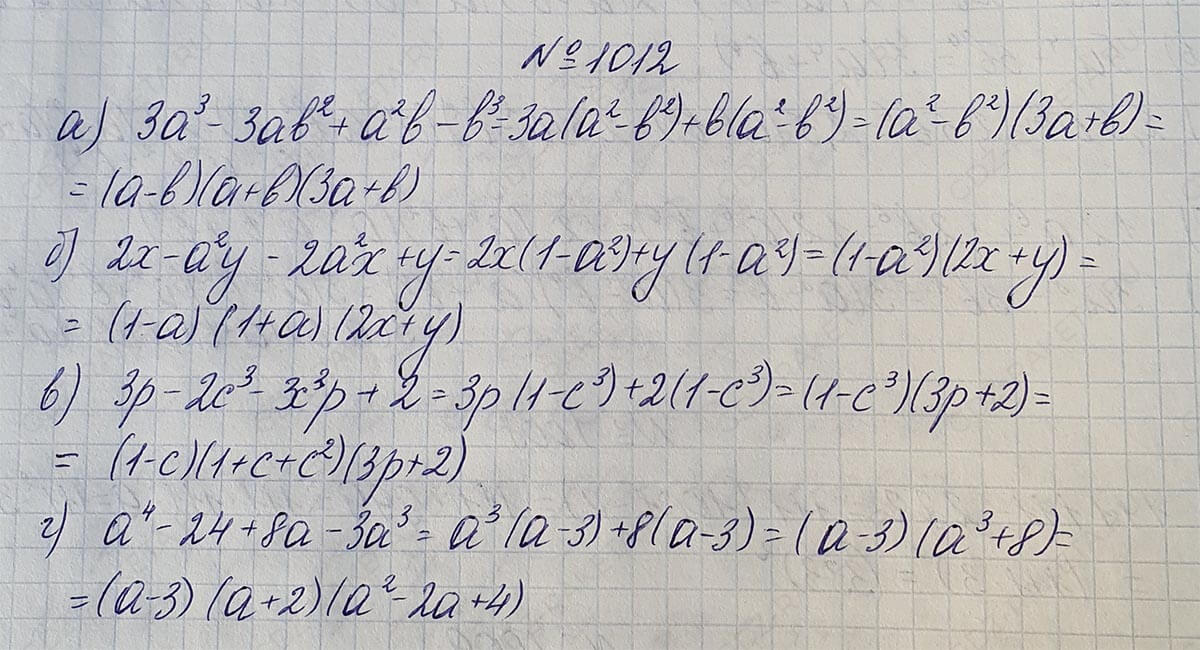 №1012
а) 3a³ - 3ab² + a²b - b³ = 3a(a² - b²) + b(a² - b²) = (a² - b²)(3a + b) =
= (a - b)(a + b)(3a + b)
б) 2x - a²y - 2a²x + y = 2x(1 - a²) + y(1 - a²) = (1 - a²)(2x + y) =
= (1 - a)(1 + a)(2x + y)
в) 3p - 2c³ - 3x³p + 2 = 3p(1 - c³) + 2(1 - c³) = (1 - c³)(3p + 2) =
= (1 - c)(1 + c + c²)(3p + 2)
г) a⁴ - 24 + 8a - 3a³ = a³(a - 3) + 8(a - 3) = (a - 3)(a³ + 8) =
= (a - 3)(a + 2)(a² - 2a + 4)